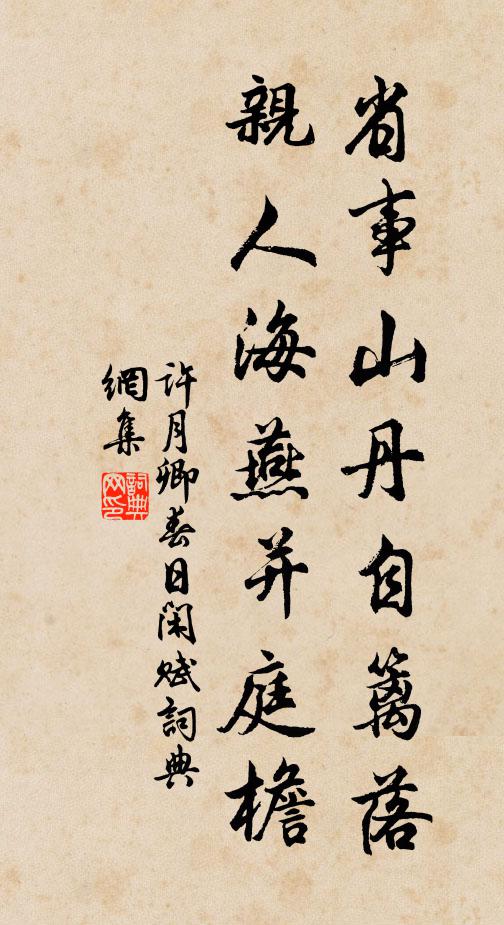 省事山丹自篱落
親人海燕并庭檐
許月卿春日閑賦詞典
網集
詞典
网印